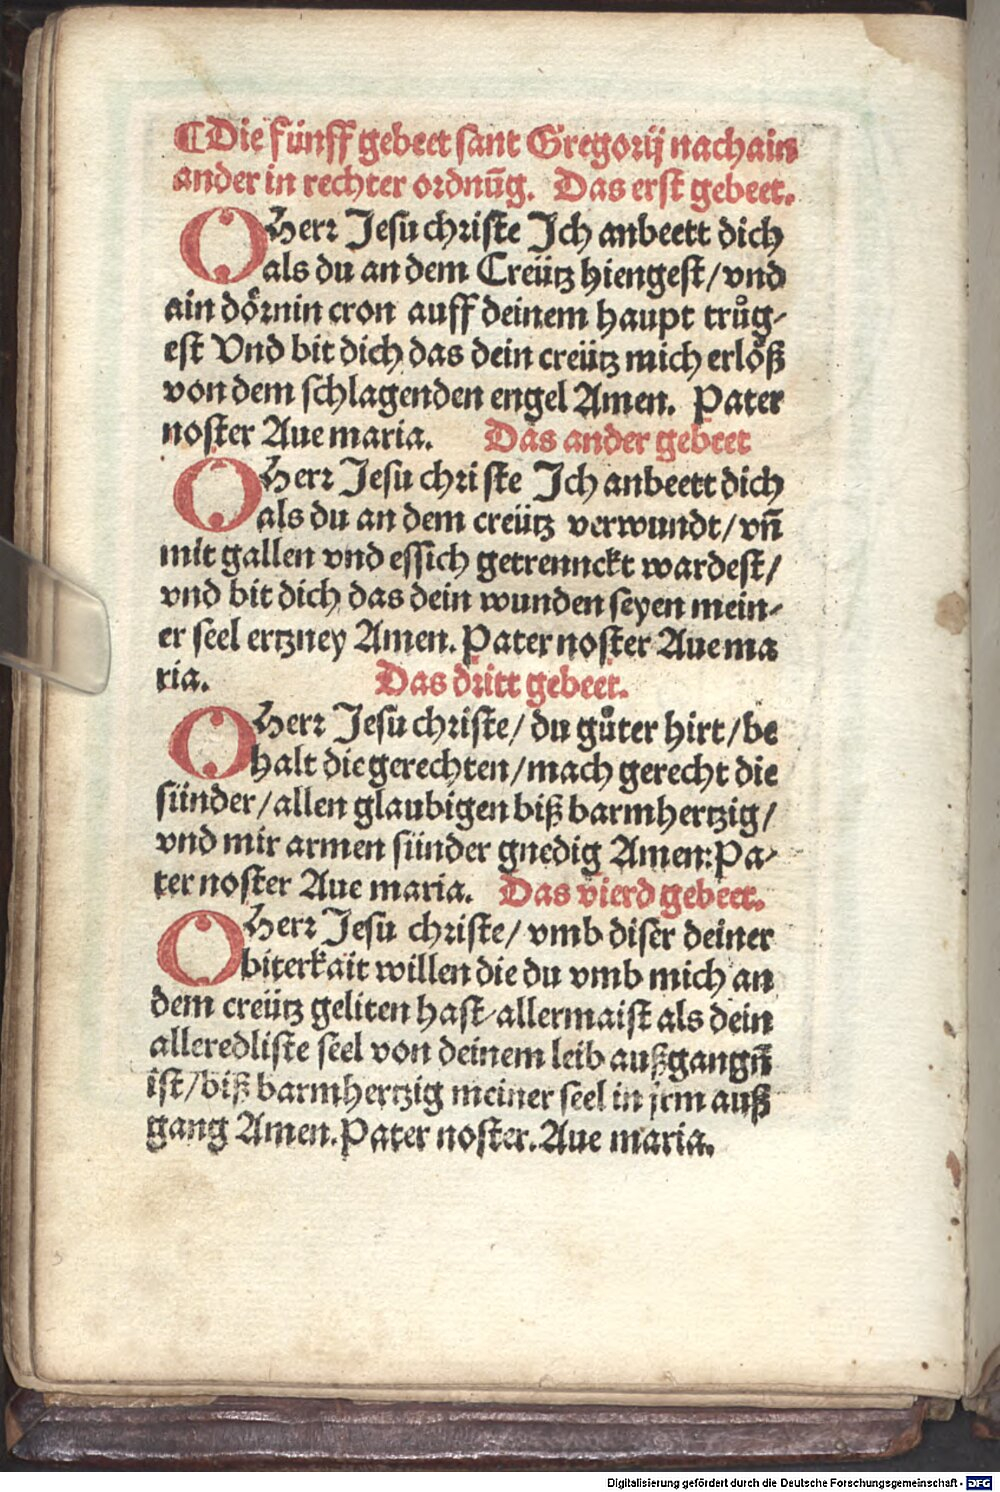 ¶Die fünff gebeet sant Gregorij nachain
ander in rechter ordnūg. Das erst gebeet.
O Herr Jesu christe Ich anbeett dich
als du an dem Creütz hiengest/vnd
ain dörnin cron auff deinem haupt trůg-
est Vnd bit dich das dein creütz mich erlöß
von dem schlagenden engel Amen. Pater
noster Aue maria. Das ander gebeet
O Herr Jesu christe Ich anbeett dich
als du an dem creütz verwundt/vñ
mit gallen vnd essich getrennckt wardest/
vnd bit dich das dein wunden seyen mein-
er seel ertzney Amen. Pater noster Aue ma
ria. Das dritt gebeet.
O Herr Jesu christe/du gůter hirt/be
halt die gerechten/mach gerecht die
sünder/allen glaubigen biß barmhertzig/
vnd mir armen sünder gnedig Amen:Pa-
ter noster Aue maria. Das vierd gebeet.
O Herr Jesu christe/vmb diser deiner
biterkait willen die du vmb mich an
dem creütz geliten hast/allermaist als dein
alleredliste seel von deinem leib außgangñ
ist/biß barmhertzig meiner seel in jrm auß
gang Amen.Pater noster.Aue maria.
Digitalisierung gefördert durch die Deutsche Forschungsgemeinschaft - DFG